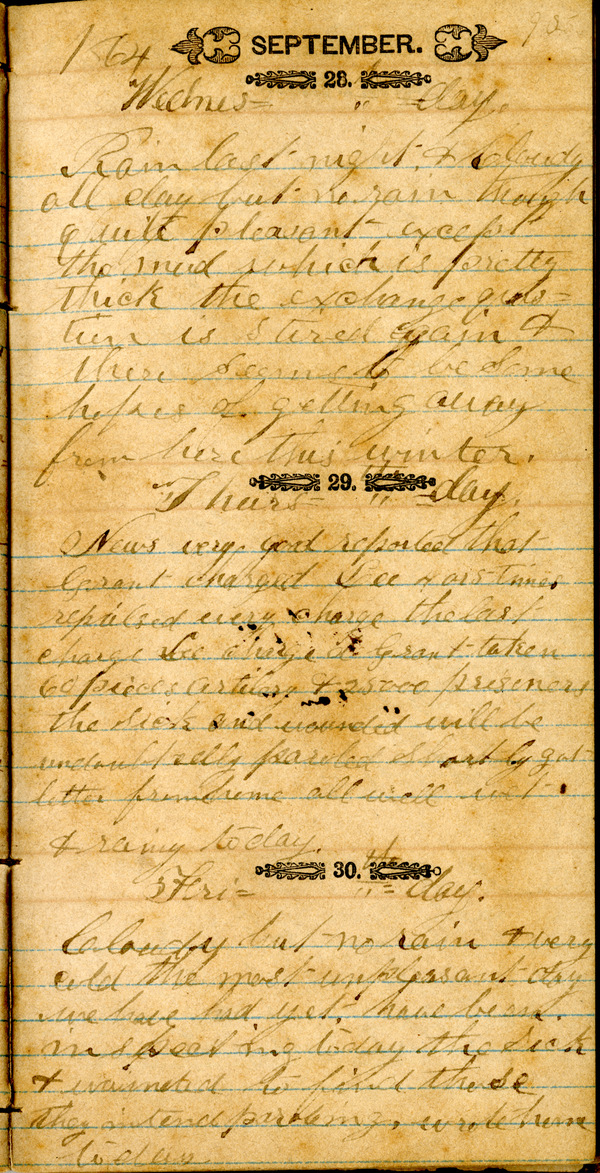 1864 SEPTEMBER. 95
28.
Wednes= " =day.
Rain last night, & cloudy
all day but no rain though
quite pleasant except
the mud which is pretty
thick the exchange ques=
tion is stired again &
there seems to be some
hopes of getting away
from here this winter.
29.
Thurs= " =day.
News very good reported that
Grant charged Lee & ors times
repulsed every charge the last
charge Lee charged Grant taken
60 pieces artilery & 25000 prisoners
the sick and wounded will be
undoubtedly paroled shortly got
letter from home all well wet
& rainy today.
30.
Fri= th "= day.
Cloudy but no rain & very
cold the most unpleasant day
we have had yet. have been
inspecting today the sick
& wounded to find those
they intend wrote home
today